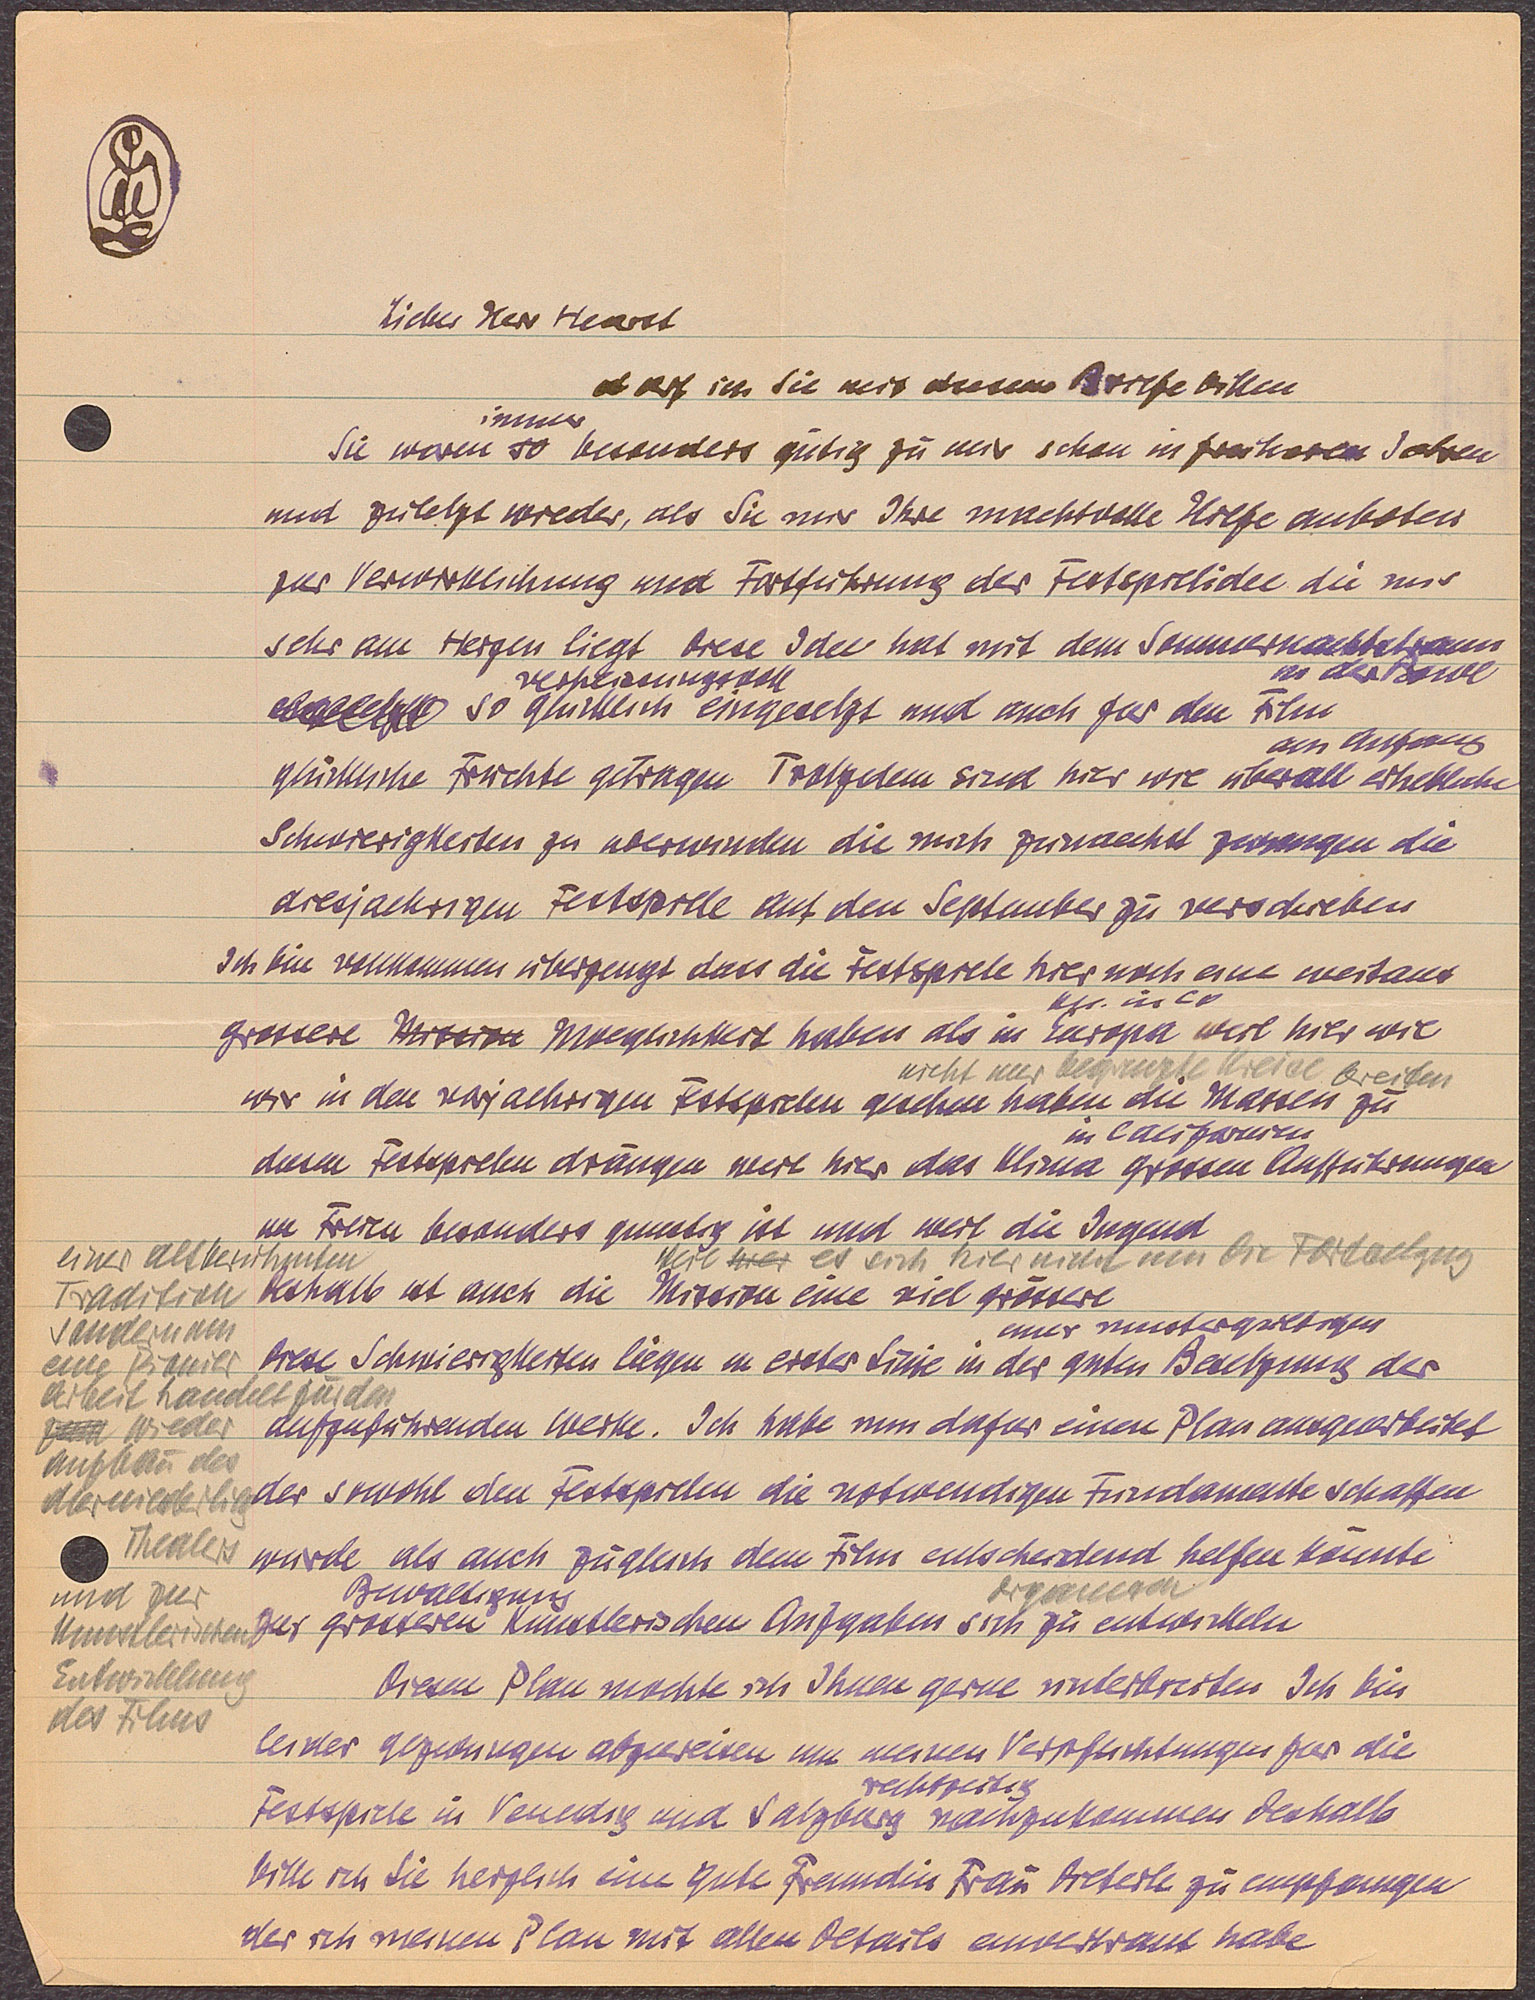 Lieber Herr Hearst
darf ich Sie mit diesem Briefe bitten
immer
Sie waren so besonders gütig zu mir schon in früheren Jahren
und zuletzt wieder, als Sie mir Ihre machtvolle Hilfe anboten
zur Verwirklichung und Fortfuhrung der Festspielidee die mir
sehr am Herzen liegt Diese Idee hat mit dem Sommernachtstraum
verheissungsvoll in der Bowl
so glücklich eingesetzt und auch fur den Film
am Anfang
glückliche Früchte getragen Trotzdem sind hier wie überall erhebliche
Schwierigkeiten zu uberwinden die mich zunaechst zwangen die
diesjaehrigen Festspiele auf den September zu verschieben
Ich bin vollkommen uberzeugt dass die Festspiele hier noch eine weitaus
grossere Mission Moeglichkeit haben als in Europa weil hier wie
nicht nur begrenzte Kreise breiten
wir in den vorjaehrigen Festspielen gesehen haben die Massen zu
in Californien
diesen Festspielen drängen weil hier das Klima grossen Auffuhrungen
im Freien besonders gunstig ist und weil die Jugend
weil hier es sich hier nicht um die Fortsetzung
einer altberühmten
Tradition
sondern um
eine Pionier
arbeit handelt für den
zum wieder
aufbau des
darniederlieg
Theaters
und zur
Künstlerischen
Entwicklung
des Films
deshalb ist auch die Mission eine viel grössere
einer mustergultigen
Diese Schwierigkeiten liegen in erster Linie in der guten Besetzung der
aufzuführenden Werke. Ich habe nun dafur einen Plan ausgearbeitet
der sowohl den Festspielen die notwendigen Fundamente schaffen
wurde als auch zugleich dem Film entscheidend helfen könnte
Bewaltigung organisch
zur grosseren Künstlerischen Aufgaben sich zu entwickeln
Diesen Plan mochte ich Ihnen gerne unterbreiten Ich bin
leider gezwungen abzureisen um meinen Verpflichtungen fur die
rechtzeitig
Festspiele in Venedig und Salzburg nachzukommen Deshalb
bitte ich Sie herzlich eine gute Freundin Frau Dieterle zu empfangen
der ich meinen Plan mit allen Details anvertraut habe